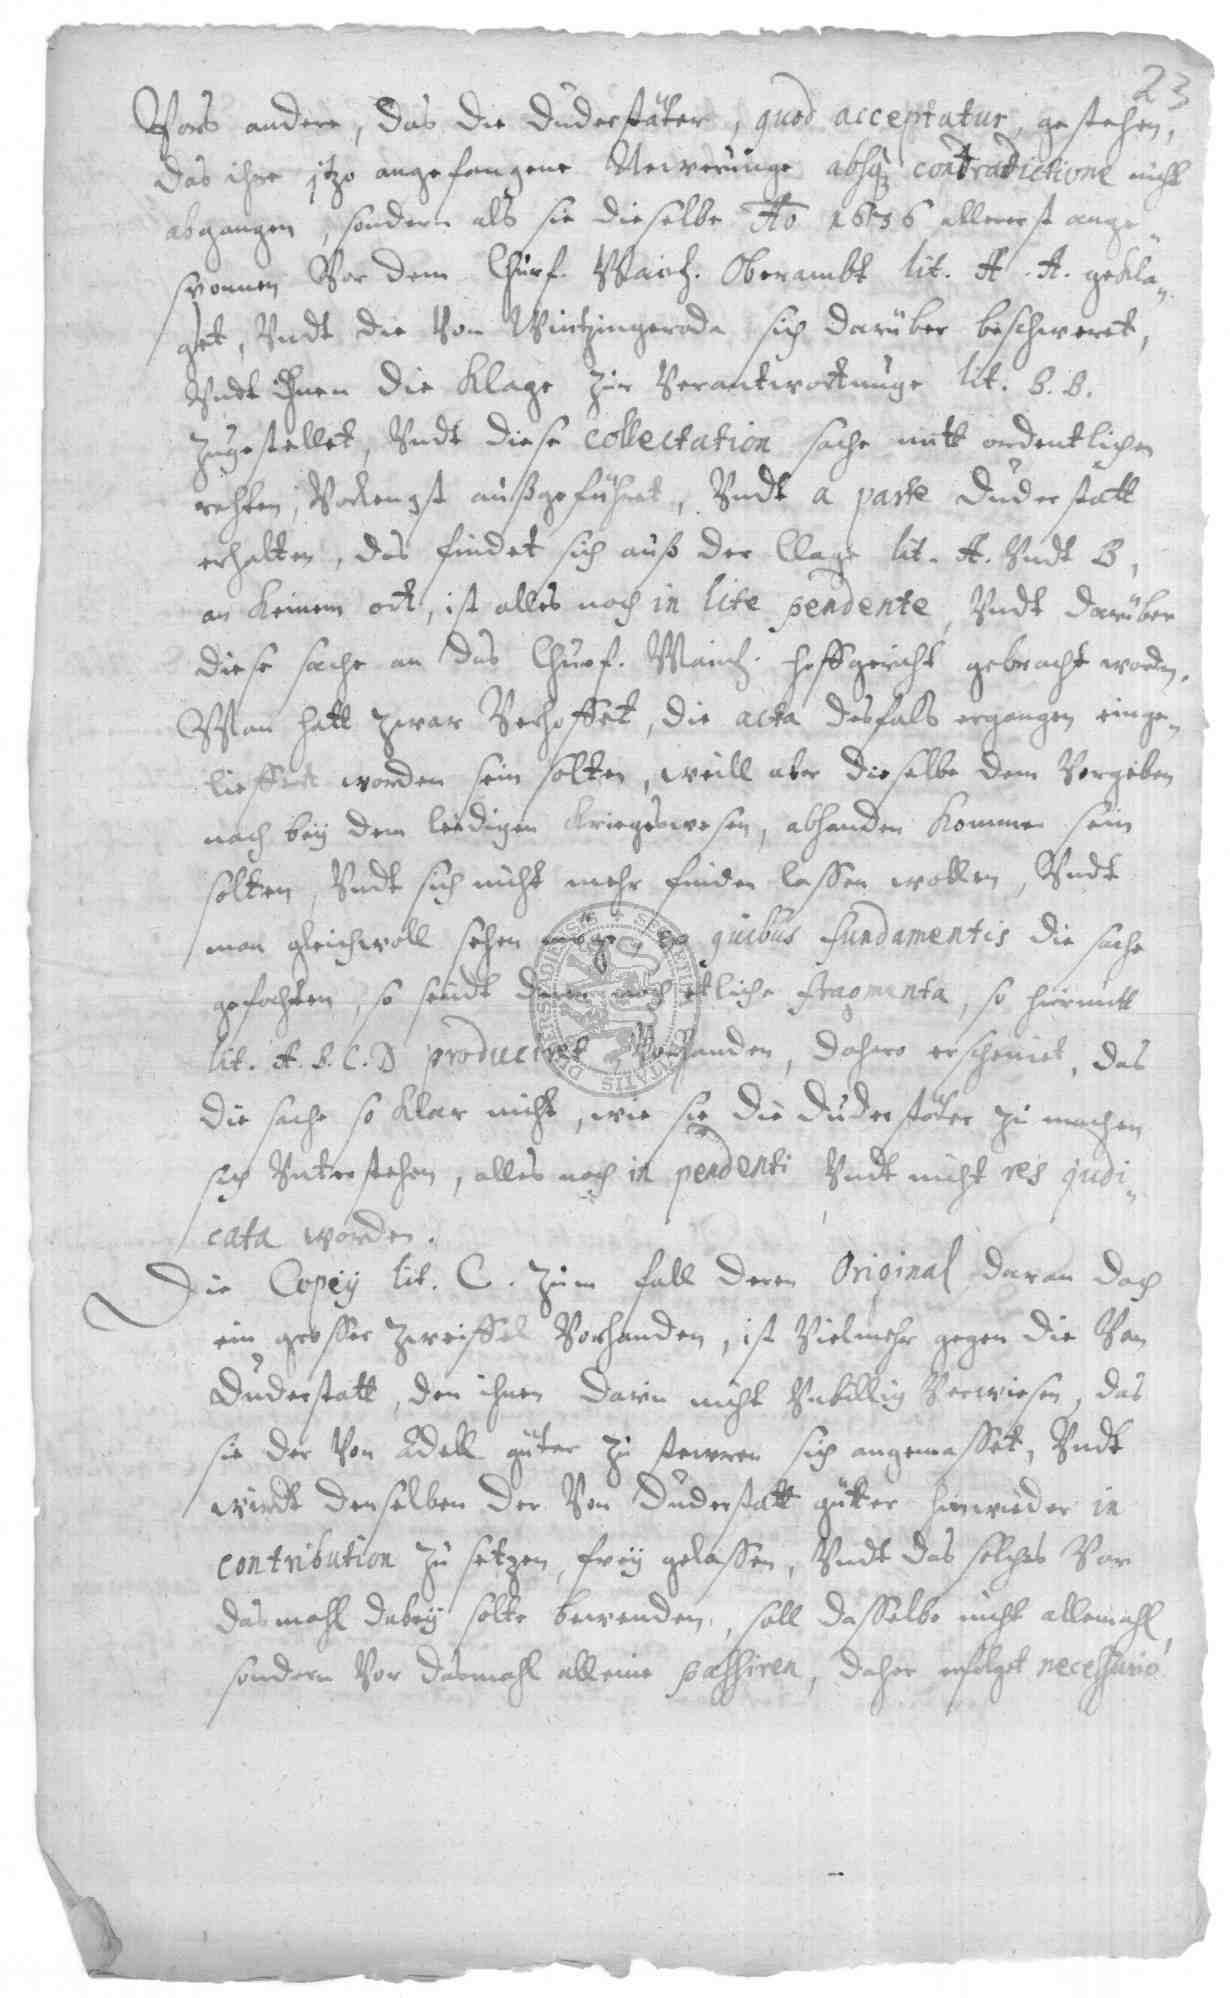 23
Vors andere, das die Duderstäter, quod acceptatur, gestehen,
das ihre itzo angefangene Newerunge absq contradictione nicht
abgangen, sondern als sie dieselbe Ao 1636 allererst ange„
sponnen Vor dem Churf. Maintz. Oberambt lit. A. A. gekla„
get, Vndt die Von Wintzingeroda sich darüber beschweret,
Vndt ihnen die Klage zur Verantwortunge lit. B. B.
zugestellet, Vndt diese collectation sache mitt ordentlichen
rechten, Vorlengst außgeführet, Vndt a parte Duderstatt
erhalten, das findet sich auß der Clage lit. A. Vndt B,
an keinem ort, ist alles noch in lite pendente, Vndt darüber
diese sache an das Churf. Maintz. hoffgericht gebracht worden.
Man hatt zwar Verhoffet, die acta desfals ergangen einge„
lieffert worden sein solten, weill aber dieselbe dem Vorgeben
nach beÿ dem leidigen Kriegswesen, abhanden kommen sein
solten, Vndt sich nicht mehr finden lassen wollen, Vndt
man gleichwoll sehen möge, ex quibus fundamentis die sache
gefochten, so seindt denn noch etliche fragmenta, so hiermitt
lit. A. B. C. D producirt Vorhanden, dahero erscheinet, das
die sache so klar nicht, wie sie die Duderstäter zu machen
sich Vnterstehen, alles noch in pendenti Vndt nicht res judi„
cata worden.
Die Copeÿ lit. C. zum fall deren Original, daran doch
ein grosser zweiffel Vorhanden, ist Vielmehr gegen die Von
Duderstatt, den ihnen darin nicht Vnbillig Verwiesen, das
sie der Von Adell güter zu stewren sich angemasset, Vndt
wirdt denselben der Von Duderstatt gütter hinwieder in
contribution zu setzen, freÿ gelassen, Vndt das solches Vor
dasmahl dabeÿ solte bewenden, soll dasselbe nicht allemahl,
sondern Vor dasmahl alleine passiren, daher erfolget necessario